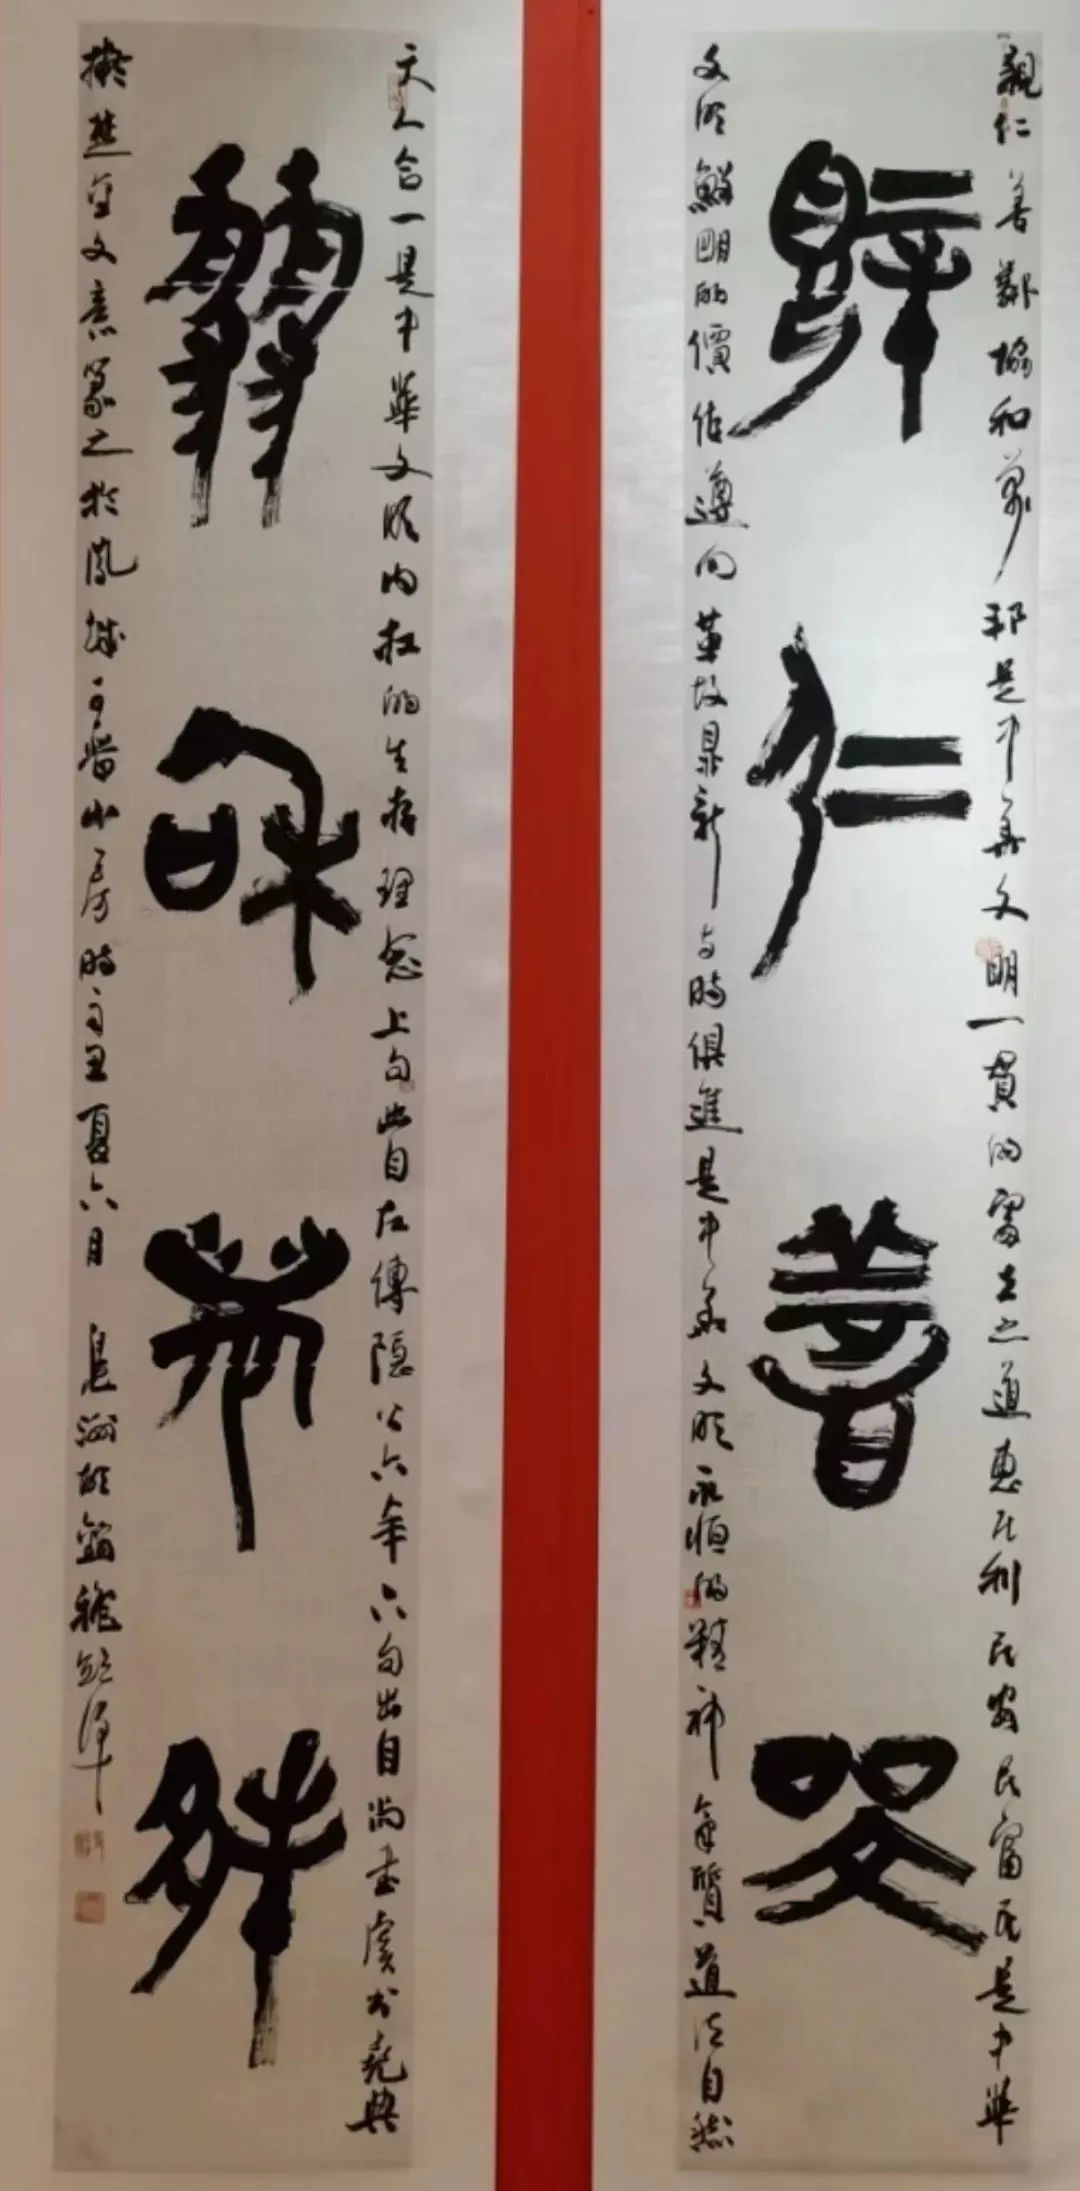 親仁善鄰協和萬邦是中華文明一貫的處世之道惠民利民安民富民是中華
親仁善鄰
文明鮮明的價值導向革故鼎新与時俱進是中華文明永恒的精神氣質道法自然
天人合一是中華文明内在的生存理念上句出自左傳隱公六年下句出自尚書虞書堯典
協和萬邦
擬楚金文意篆之於鳳城 山房時辛丑夏六月